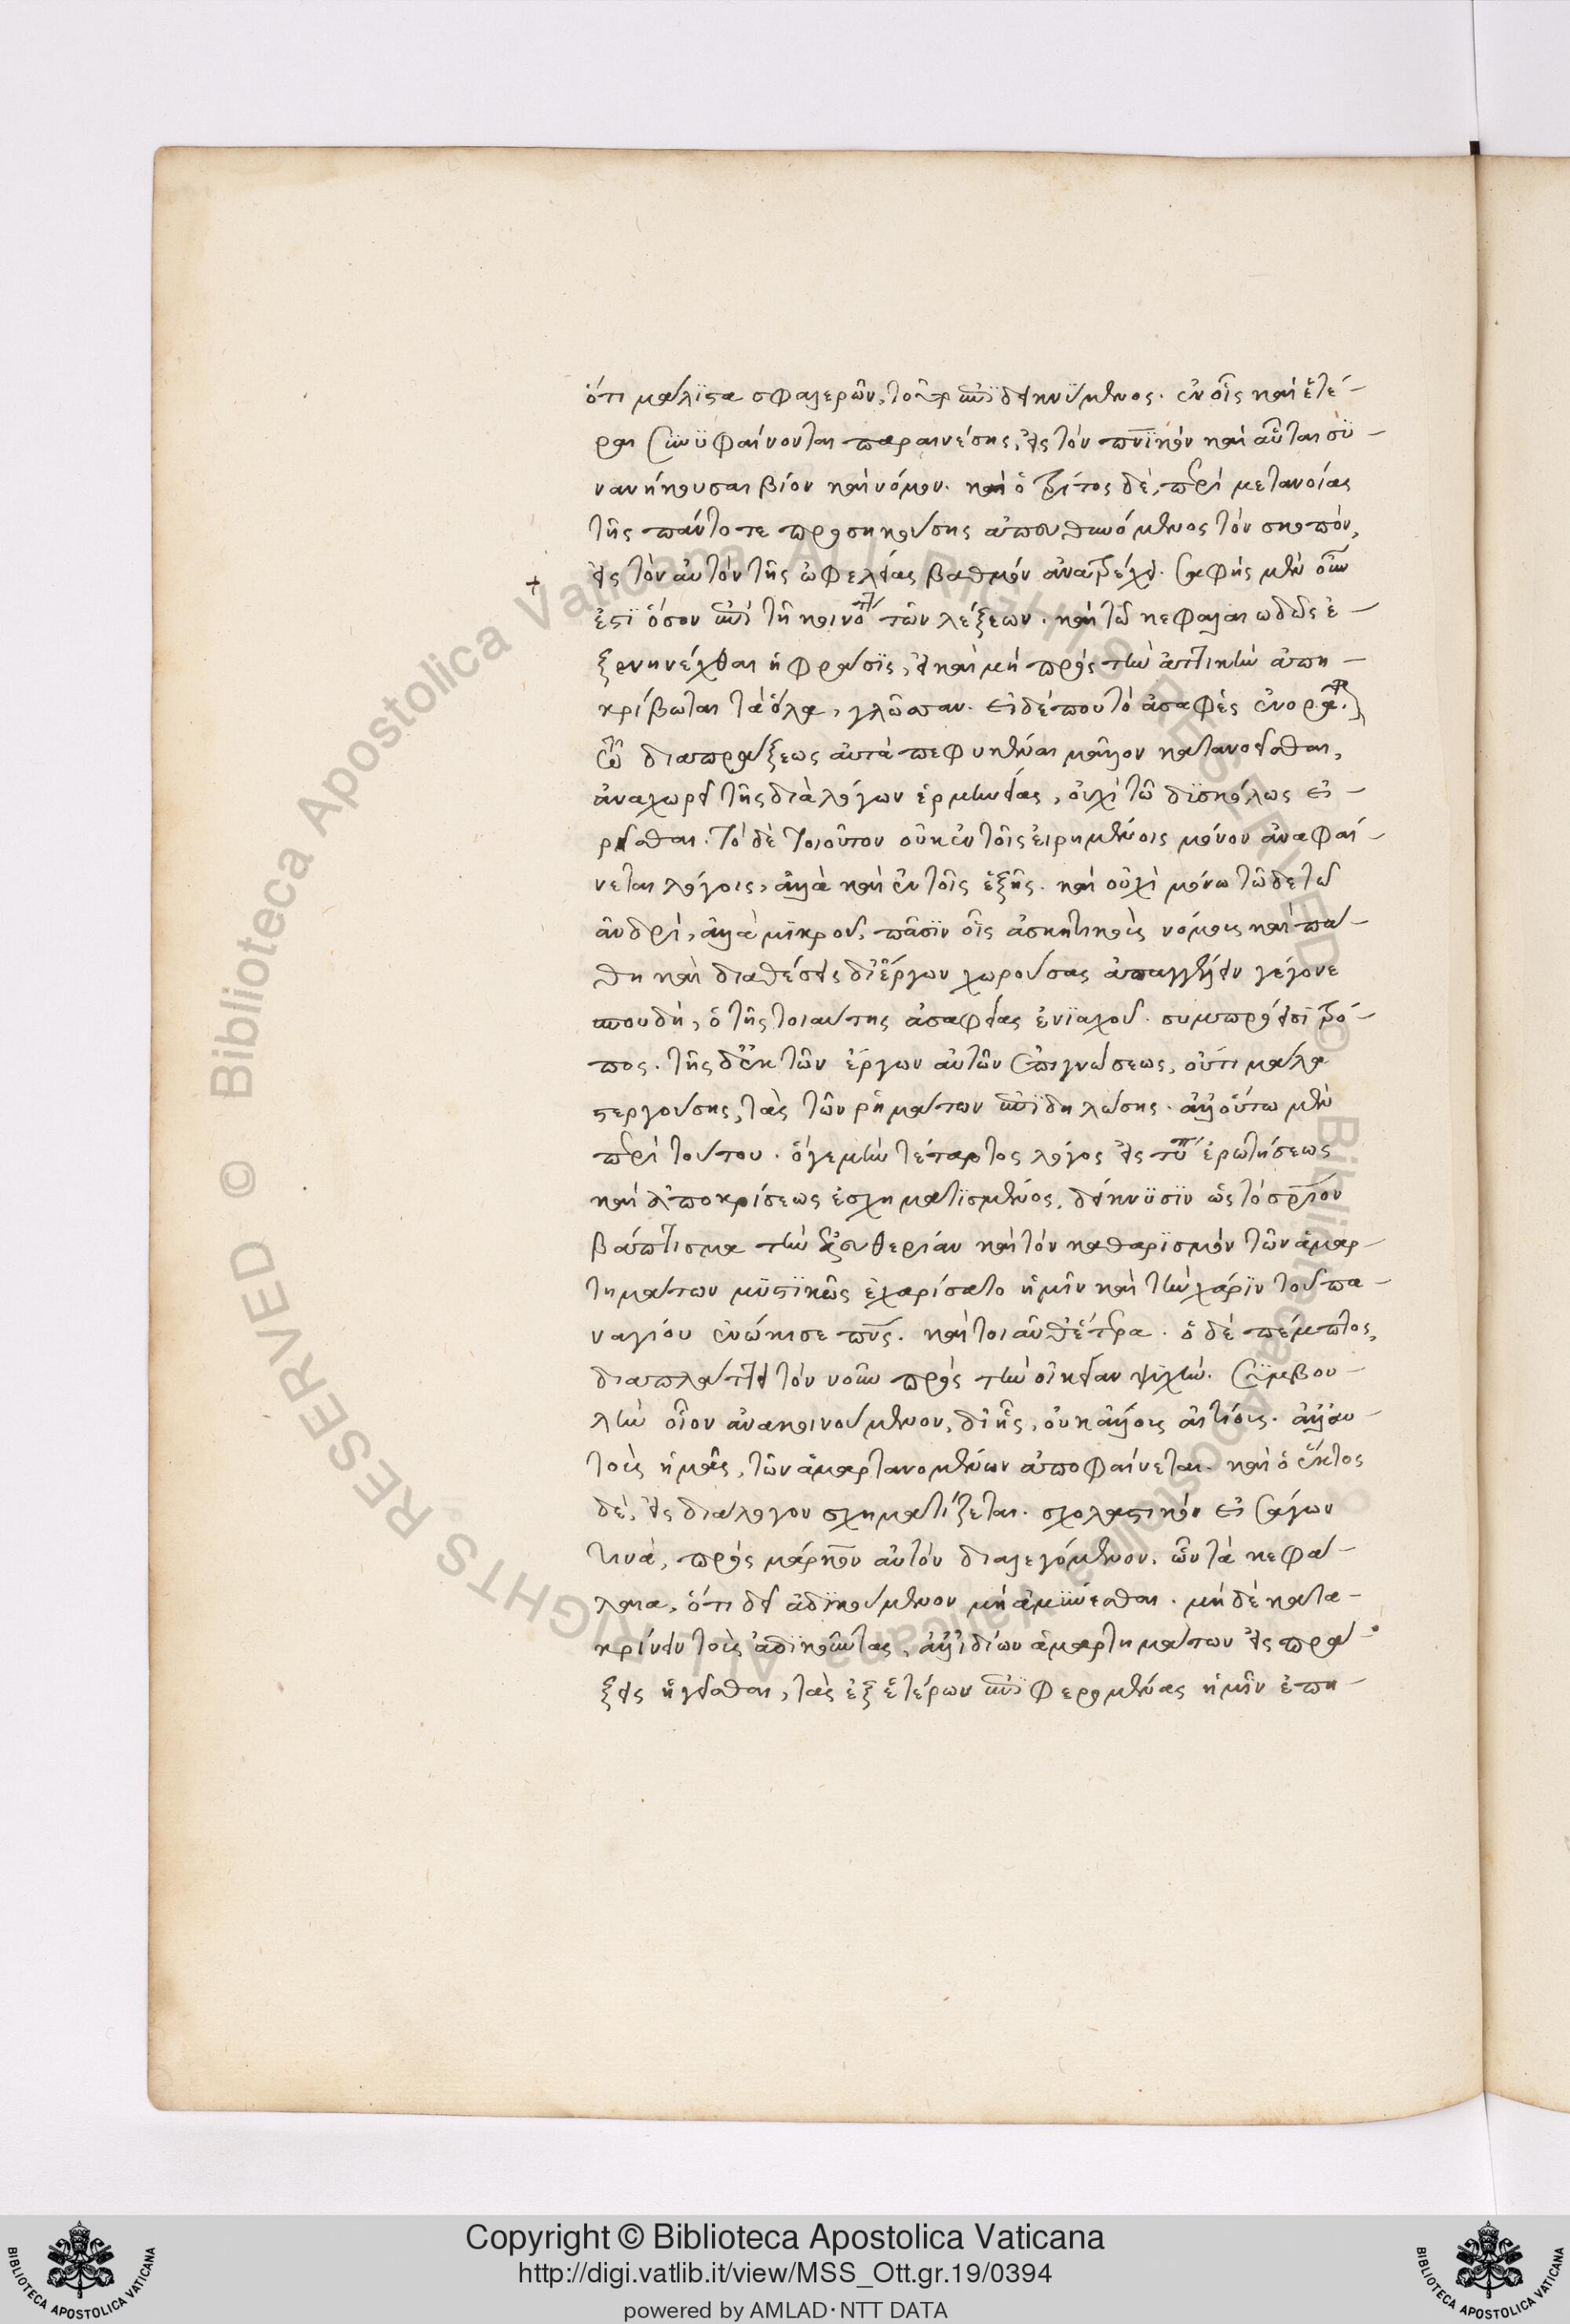 ὅτι μάλιϊστα σφαλερὸν, τοῦτο ἐπιδεικνύμενος. ἐν οἷς καὶ ἕτε-
ραι συνυφαίνονται παραινέσεις, εἰς τὸν πνϊκὸν καὶ αὗται συ-
νανήκουσαι βίον καὶ νόμον. καὶ ὁ τρίτος δὲ, περὶ μετανοίας
τῆς πάντοτε προσηκούσης ἀποτεινόμενος τὸν σκοπὸν,
εἰς τὸν αὐτὸν τῆς ὠφελείας βαθμὸν ἀνατρέχει. σαφὴς μὲν οὖν
ἐστὶ ὅσον ἐπὶ τῆ κοινό τῶν λέξεων. καὶ τῶ κεφαλαιωδῶς ἐ-
ξενηνέχθαι ἡ φράσϊς, εἰ καὶ μὴ πρὸς τὴν ἀττικὴν ἀπη-
κρίβωται τὰ ὅλα, γλῶσσαν. εἰ δέ που τὸ ἀσαφὲς ἐνορᾶ.
διαπράξεως αὐτὰ πεφυκέναι μᾶλλον κατανοεῖσθαι,
ἀναχωρεῖ τῆς διὰ λόγων ἑρμηνείας, οὐχὶ τῶ δϊσκόλως εἰ-
ρῆσθαι. τὸ δὲ τοιοῦτον οὐκ ἐν τοῖς εἰρημένοις μόνον ἀναφαί-
νεται λόγοις, ἀλλὰ καὶ ἐν τοῖς ἑξῆς. καὶ οὐχὶ μόνω τῶδε τῶ
ἀνδρὶ, ἀλλὰ μϊκροῦ, πᾶσϊν οἷς ἀσκητικοὺς νόμους καὶ πά-
θη καὶ διαθέσεις δι' ἔργων χωρούσας ἀπαγγέλλειν γέγονε
σπουδὴ, ὁ τῆς τοιαύτης ἀσαφείας ἐνϊαχοῦ. συμπρόεισϊ τρό-
πος. τῆς δ' ἐκ τῶν ἔργων αὐτῶν ἐπιγνώσεως, οὔτι μάλα
στεργούσης, τὰς τῶν ῥημάτων ἐπιδηλώσεις. ἀλλ' οὕτω μὲν
περὶ τούτου. ὅ γε μὴν τέταρτος λόγος εἰς τύπ ἐρωτήσεως
καὶ ἀποκρίσεως ἐσχηματϊσμένος, δείκνϋσϊν ὡς τὸ σριον
βάπτισμα τὴν ἐλευθερίαν καὶ τὸν καθαρϊσμὸν τῶν ἁμαρ-
τημάτων μϋστϊκῶς ἐχαρίσατο ἡμῖν καὶ τὴν χάρϊν τοῦ πα-
ναγίου ἐνώκισε πνς. καὶ τοιαῦθ' ἕτερα. ὁ δὲ πέμπτος,
διαπλάττει τὸν νοῦν πρὸς τὴν οἰκείαν ψϋχὴν. σϋμβου-
λὴν οἷον ἀνακοινούμενον, δι' ἧς, οὐκ ἄλλους αἰτίους. ἀλλ' αὐ-
τοὺς ἡμᾶς, τῶν ἁμαρτανομένων ἀποφαίνεται. καὶ ὁ ἕκτος
δὲ, εἰς διάλογον σχηματίζεται. σχολαστικὸν εἰσάγων
τινὰ, πρὸς μάρκον αὐτὸν διαλεγόμενον. ὧν τὰ κεφά-
λαια, ὅτι δεῖ ἀδϊκούμενον μὴ ἀμϋνεσθαι. μὴ δὲ κατα-
κρίνειν τοὺς ἀδϊκοῦντας, ἀλλ' ἰδίων ἁμαρτημάτων εἰς πρά-
ξεις ἡγεῖσθαι, τὰς ἐξ ἑτέρων ἐπϊφερομένας ἡμῖν ἐπη-
Copyright © Biblioteca Apostolica Vaticana
http://digi.vatlib.it/view/MSS_Ott.gr.19/0394
powered by AMLAD·NTT DATA
BIBLIOTECA APOSTOLICA VATICANA
BIBLIOTECA APOSTOLICA VATICANA
© Biblioteca Apostolica Vaticana ALL RIGHTS RESERVED
© Biblioteca Apostolica Vaticana ALL RIGHTS RESERVED